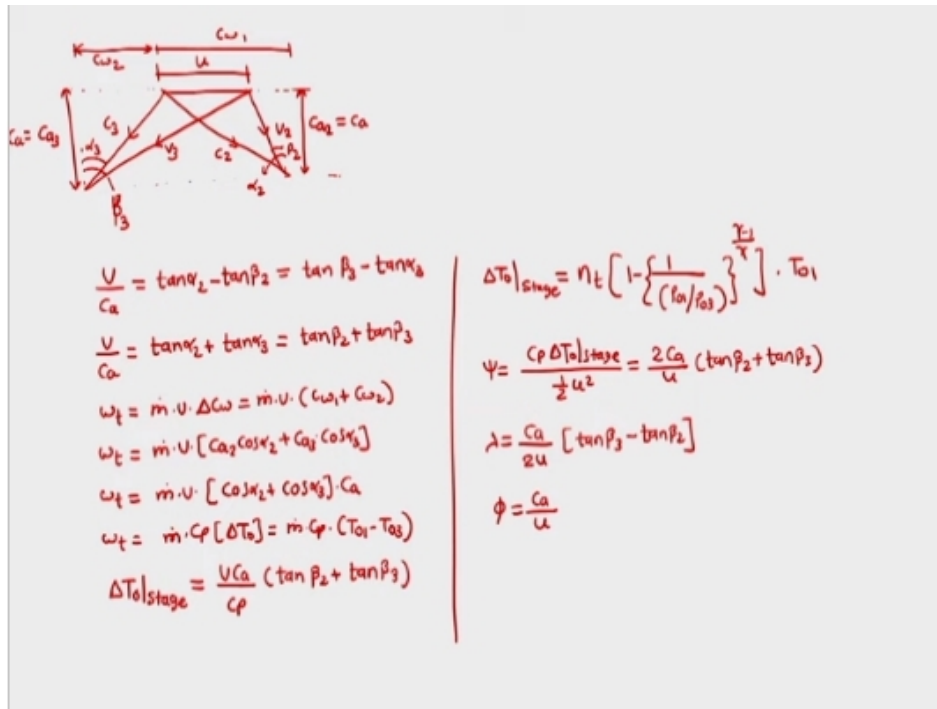 Cω₁
Cω₂
u
Ca = Ca₃
C₃
α₃
V₃
C₂
V₂
β₂
Ca₂ = Ca
α₂
β₃
U/Ca = tanα₂ - tanβ₂ = tan β₃ - tanα₃
U/Ca = tanα₂ + tanα₃ = tanβ₂ + tanβ₃
ωt = ṁ.U. ΔCω = ṁ.U. (Cω₁ + Cω₂)
ωt = ṁ.U. [Ca₂ Cosα₂ + Ca₃ Cosα₃]
ωt = ṁ.U. [Cosα₂ + Cosα₃].Ca
ωt = ṁ.Cp [ΔT₀] = ṁ.Cp. (T₀₁ - T₀₃)
ΔT₀|stage = UCa/Cp (tan β₂ + tan β₃)
ΔT₀|stage = ηt [1 - {1/(P₀₁/P₀₃)}^((γ-1)/γ)] . T₀₁
Ψ = Cp ΔT₀|stage / ½u² = 2Ca/u (tanβ₂ + tanβ₃)
λ = Ca/2u [tanβ₃ - tanβ₂]
ϕ = Ca/u